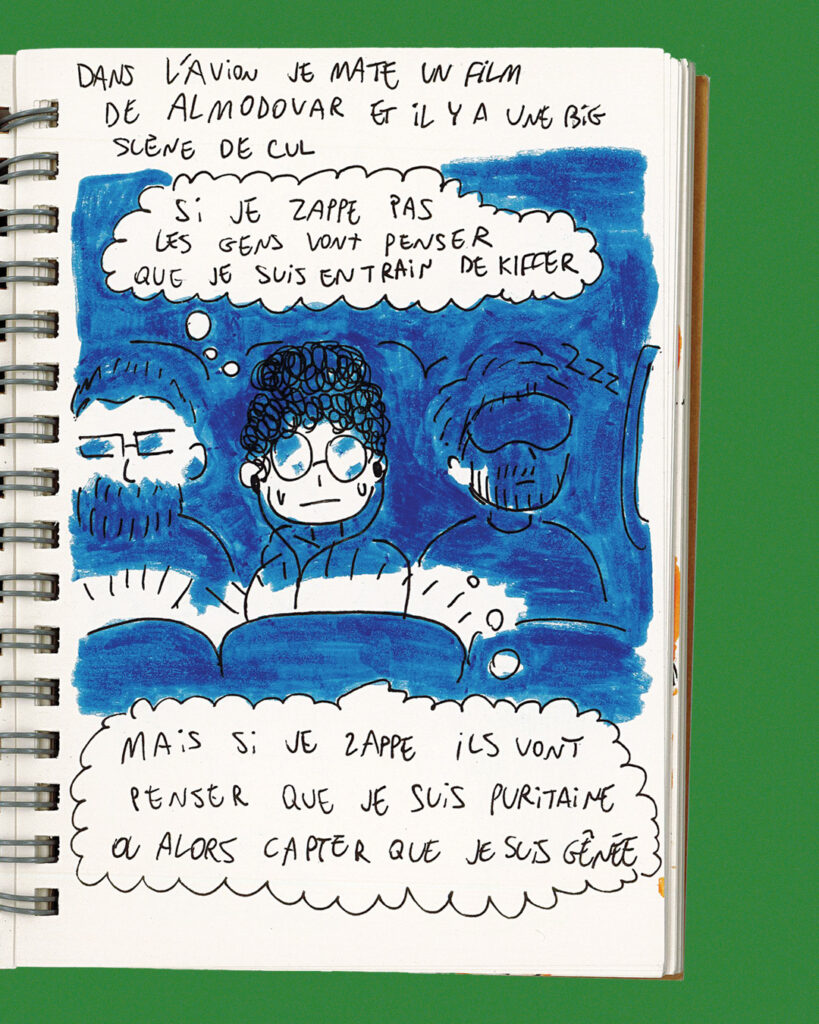 DANS L'AVION JE MATE UN FILM
DE ALMODOVAR ET IL Y A UNE BIG
SCÈNE DE CUL
SI JE ZAPPE PAS
LES GENS VONT PENSER
QUE JE SUIS EN TRAIN DE KIFFER
ZZZ
MAIS SI JE ZAPPE ILS VONT
PENSER QUE JE SUIS PURITAINE
OU ALORS CAPTER QUE JE SUIS GÊNÉE